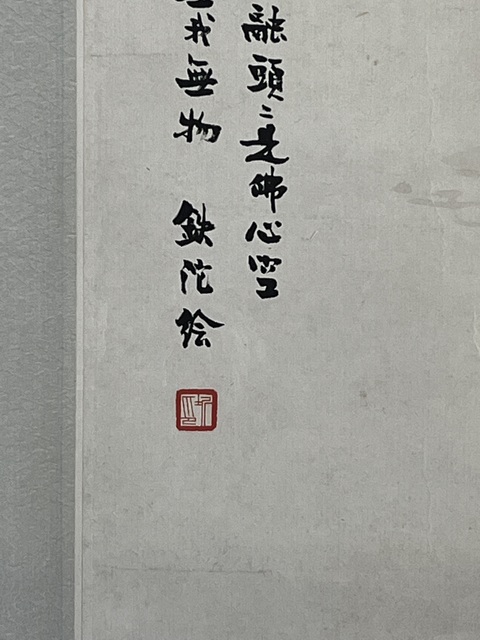 融頭〻是佛心空
我無物 鉄陀絵